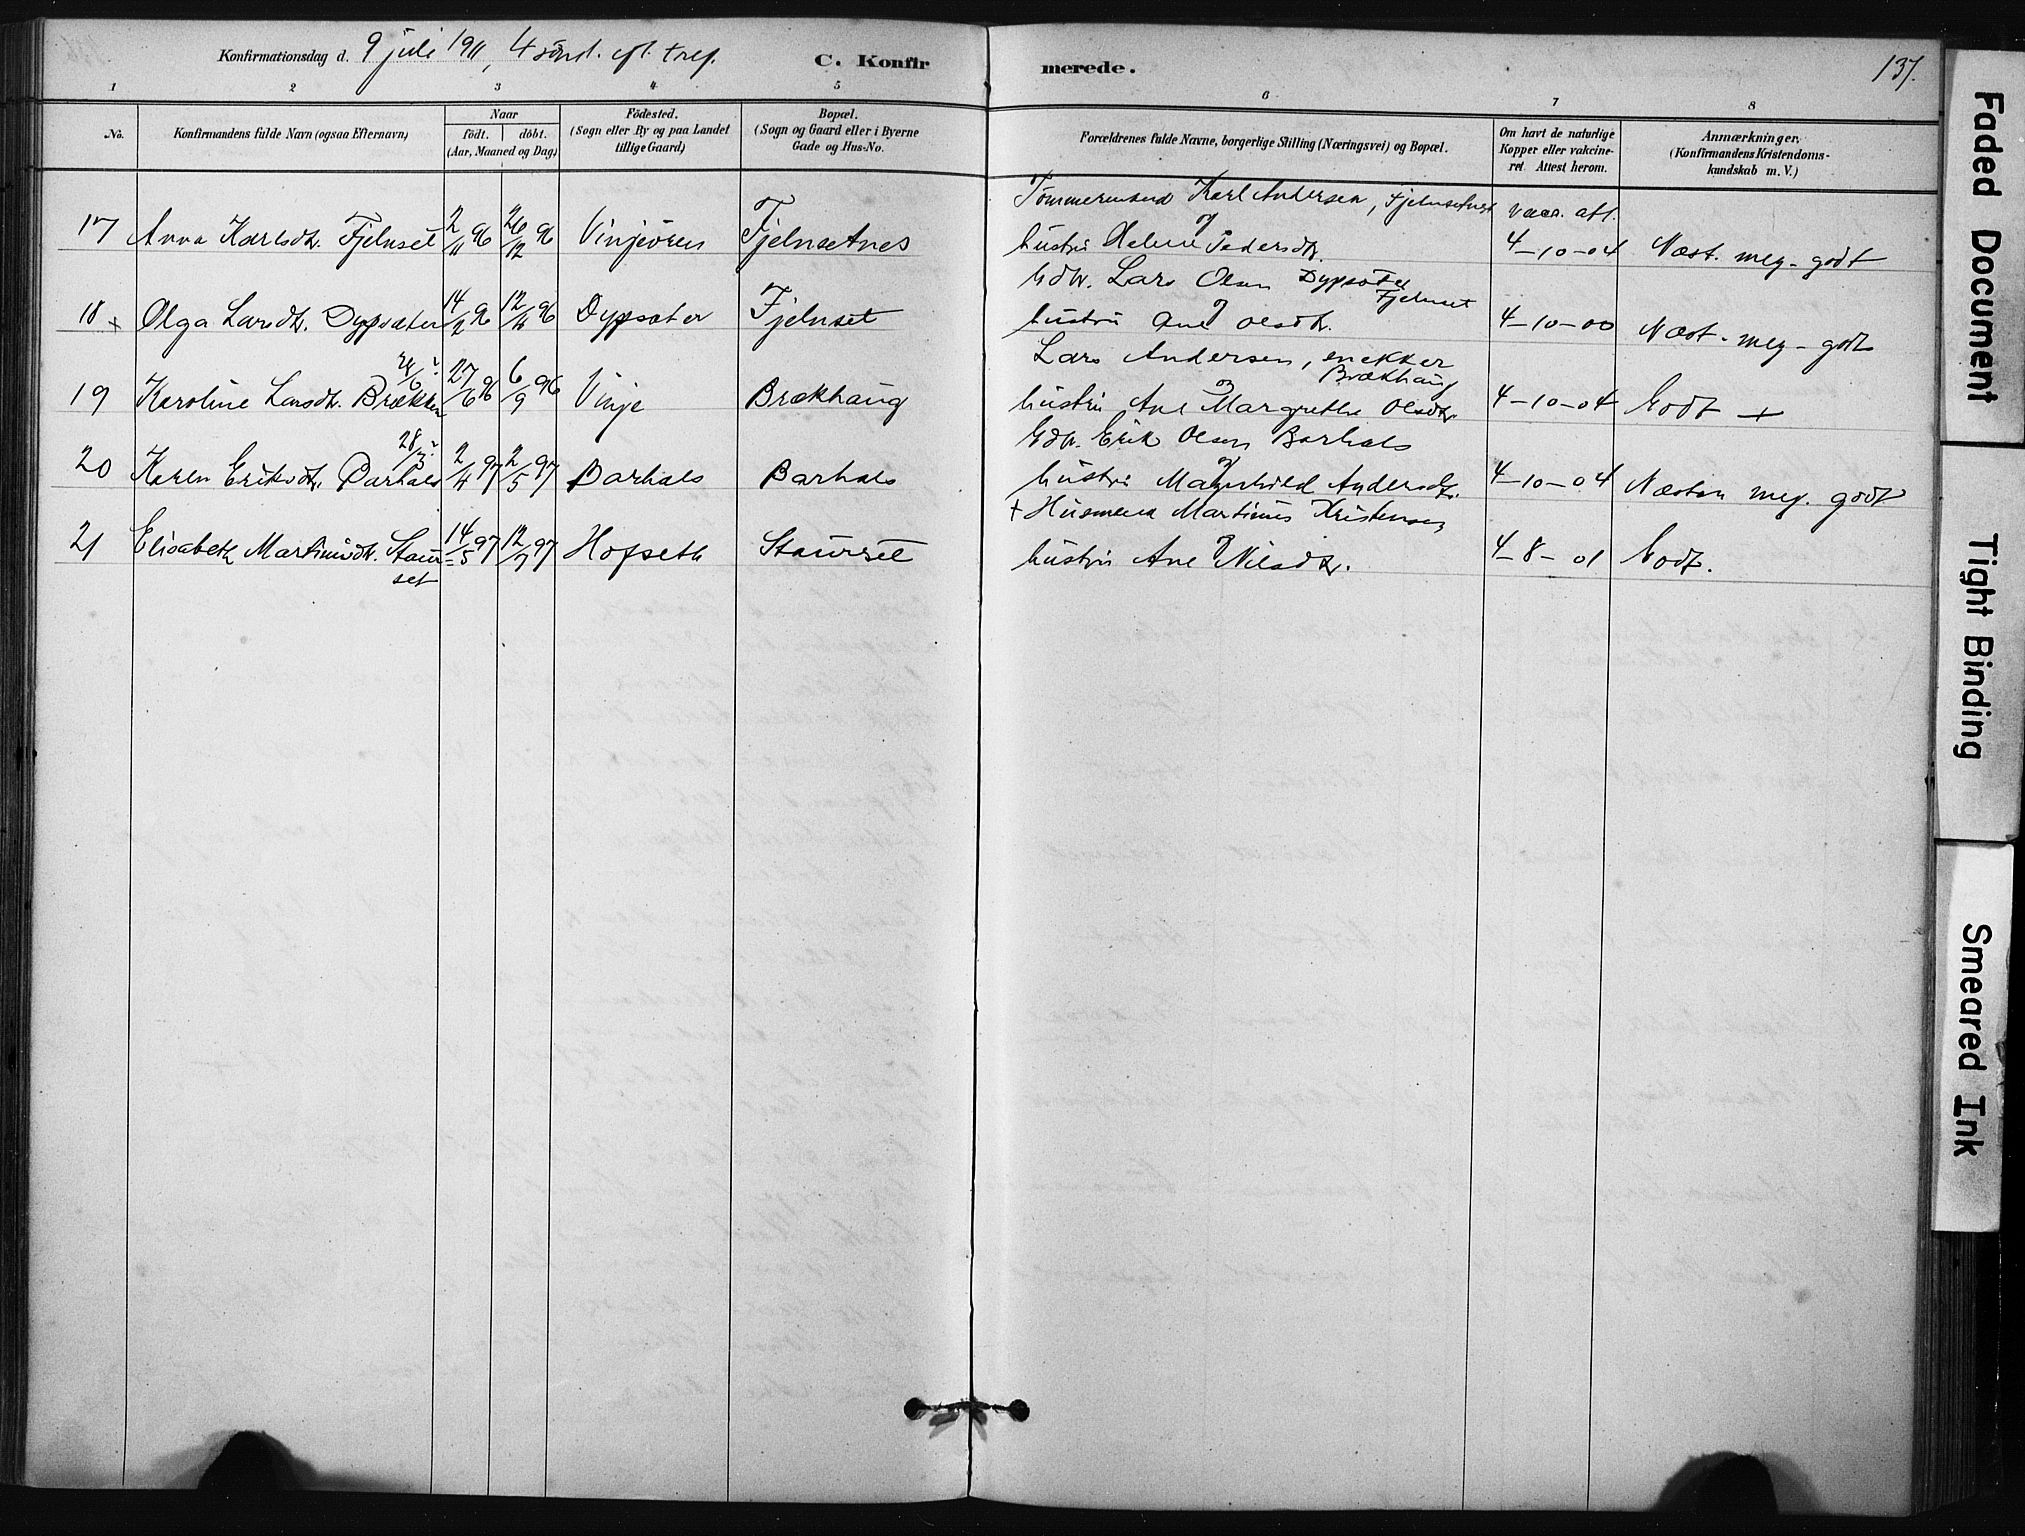 Konfirmationsdag d. 9 juli 1911, 4 sönd. eft. tref.
C. Konfirmerede.
137.
1 2 3 4 5 6 7 8
No.
Konfirmandens fulde Navn (ogsaa Efternavn)
Naar
födt. döbt.
(Aar, Maaned og Dag)
Födested.
(Sogn eller By og paa Landet
tillige Gaard)
Bopæl.
(Sogn og Gaard eller i Byerne
Gade og Hus-No.
Forældrenes fulde Navne, borgerlige Stilling (Næringsvei) og Bopæl.
Om havt de naturlige
Kopper eller vakcine-
ret. Attest herom.
Anmærkninger.
(Konfirmandens Kristendoms-
kundskab m. V.)
Tömmermand Karl Andersen, Fjelnsetnes vacc. att.
17 Anna Karlsdtr. Fjelnset 2/11 96 26/12 96 Vinjeören Fjelnsetnes og hustru Helene Pedersdtr. 4-10-04 Næst. meg. godt
Gdbr. Lars Olsen Dypsæter
Fjelnset
18 + Olga Larsdtr. Dypsæter 14/2 96 12/4 96 Dypsæter Fjelnset og hustru Ane Olsdtr. 4-10-00 Næst. meg. godt
Lars Andersen, enekker
Brækhaug
24/6?
19 Karoline Larsdtr. Brækken 27/6 96 6/9 96 Vinje Brækhaug og hustru Ane Margrethe Olsdtr. 4-10-04 Godt +
Gdbr. Erik Olsen Barhals
28/3?
20 Karen Eriksdtr. Barhals 2/4 97 2/5 97 Barhals Barhals og hustru Magnhild Andersdtr. 4-10-04 Næsten meg. godt
+ Husmand Martinus Kristensen
21 Elisabeth Martinusdtr. Staur- 14/5 97 12/7 97 Hofseth Staurset og hustru Ane Nilsdtr. 4-8-01 Godt.
set
Faded Document
Tight Binding
Smeared Ink